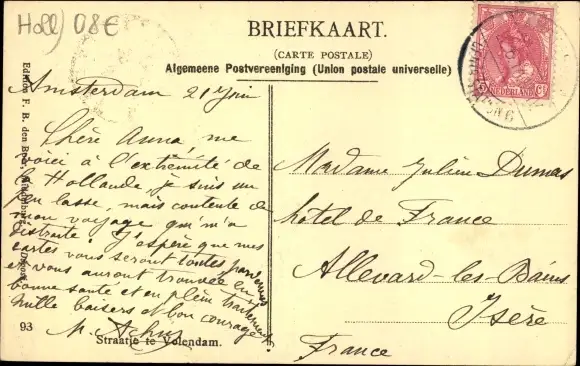 Holl) 08€
BRIEFKAART.
(CARTE POSTALE)
Algemeene Postvereeniging (Union postale universelle)
NEDERLAND
Amsterdam 21 Juin
Chère Anna, me
voici à l'extrémité de
la Hollande, je suis un
peu lasse, mais contente de
mon voyage qui m'a
distraite. J'espère que mes
cartes vous seront toutes parvenues
et vous auront trouvée en
bonne santé et en plein traitement
Mille baisers et bon courage
M.
Madame Julien Dumas
hôtel de France
Allevard-les-Bains
Isère
France
93
Straatje te Volendam.
Edition F. B. den Boer, Middelburg